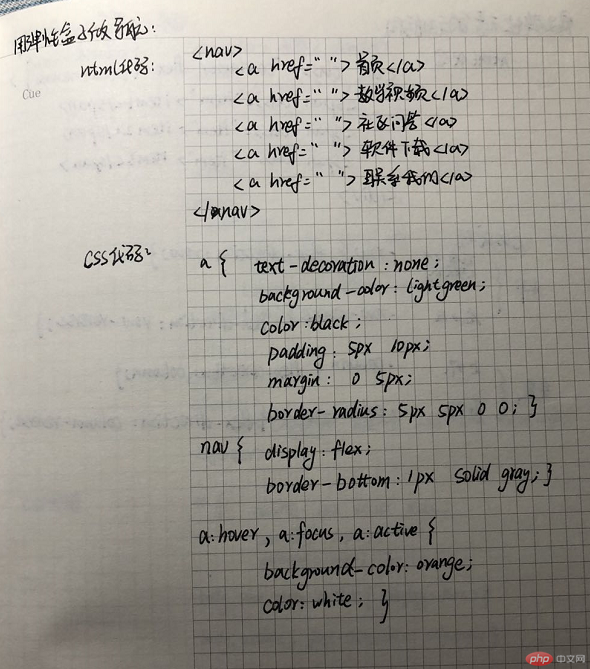 用弹性盒子做导航:
html代码:
<nav>
<a href=" "> 首页</a>
<a href=" "> 教学视频</a>
<a href=" "> 社区问答</a>
<a href=" "> 软件下载</a>
<a href=" "> 联系我们</a>
</nav>
Cue
CSS代码:
a { text-decoration: none;
background-color: lightgreen;
color: black;
padding: 5px 10px;
margin: 0 5px;
border-radius: 5px 5px 0 0; }
nav { display: flex;
border-bottom: 1px solid gray; }
a:hover, a:focus, a:active {
background-color: orange;
color: white; }
php 中文网